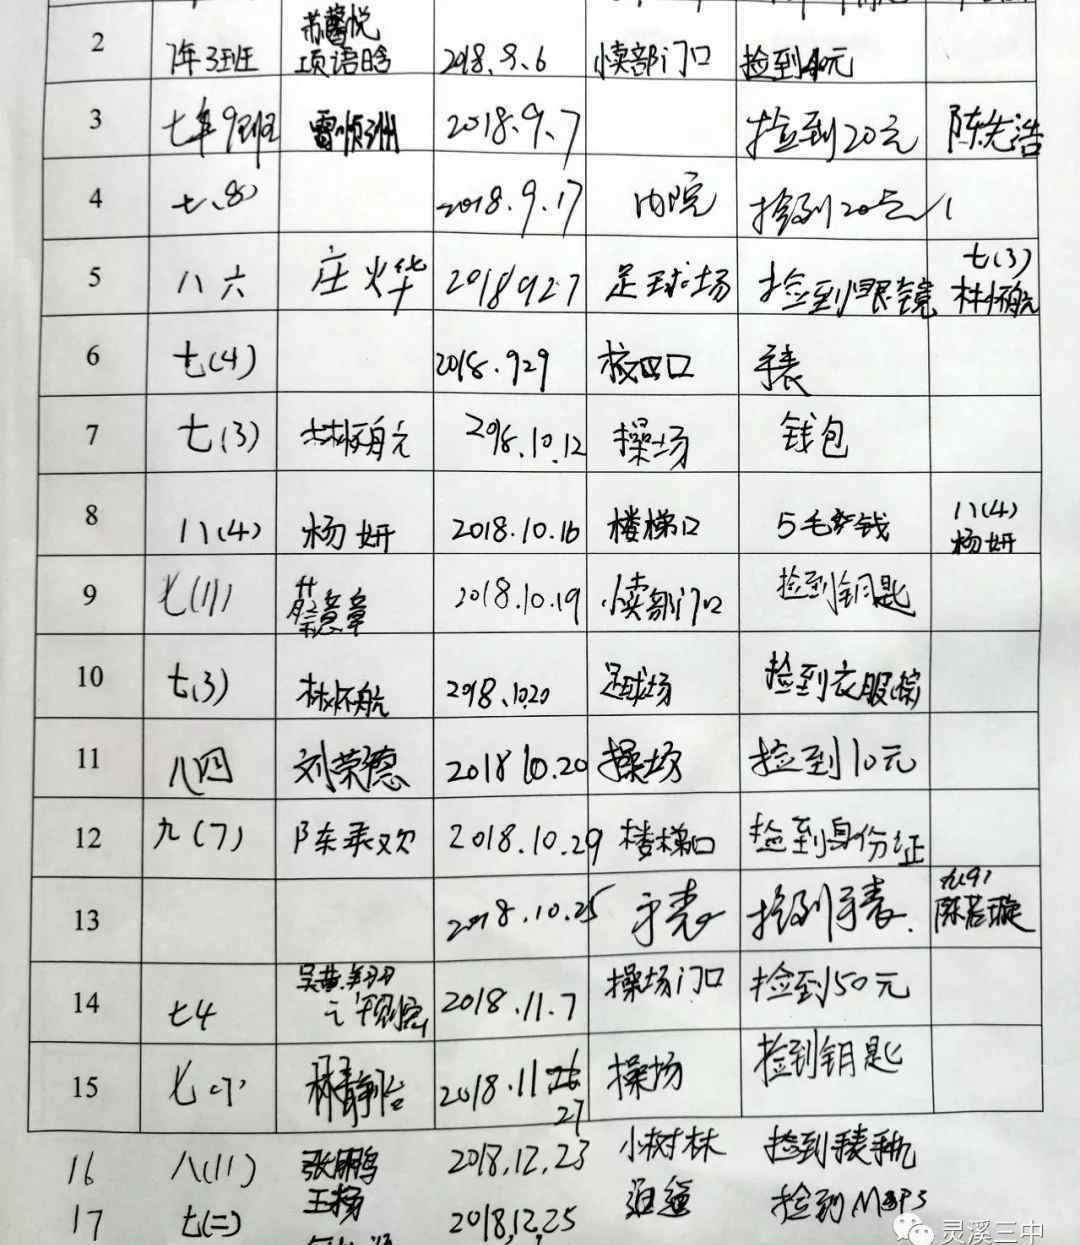 2 7年3班 苏馨悦
项语晗 2018.9.6 小卖部门口 捡到40元
3 七年9班 雷顺洲 2018.9.7 捡到20元 陈先浩
4 七.8) 2018.9.17 内院 捡到20元
5 八六 庄火华 2018.9.27 足球场 捡到眼镜 七(3)
林怀航
6 七(4) 2018.929 校门口 手表
7 七(3) 林怀航 2018.10.12 操场 钱包
8 八(4) 杨妍 2018.10.16 楼梯口 5毛钱 八(4)
杨妍
9 七(11) 蔡意章 2018.10.19 小卖部门口 捡到钥匙
10 七(3) 林怀航 2018.10.20 足球场 捡到衣服
11 八四 刘荣德 2018 10.20 操场 捡到10元
12 九(7) 陈乘欢 2018.10.29 楼梯口 捡到身份证
13 2018.10.25 手表 捡到手表. 九(9)
陈若璇
14 七4 2018.11.7 操场门口 捡到50元
15 林静怡 2018.11.26
27 操场 捡到钥匙
16 八(11) 张鹏 2018.12.23 小树林 捡到手表手机
17 七(二) 王杨 2018.12.25 捡到MP3
灵溪三中